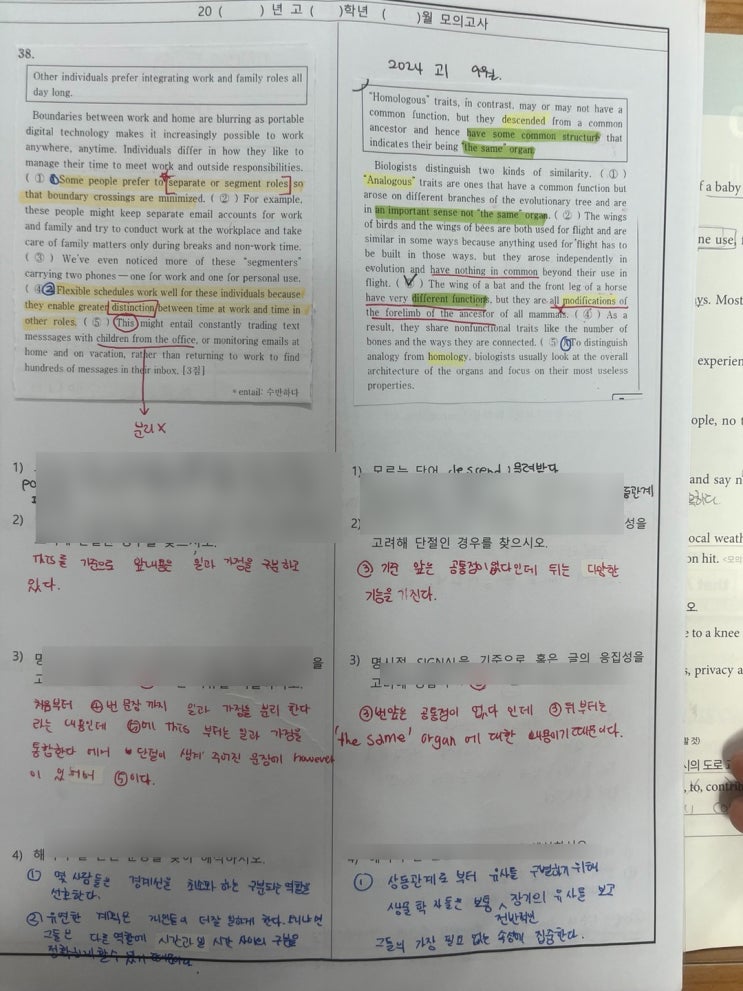 20 ( ) 년 고 ( )학년 ( )월 모의고사
38.
Other individuals prefer integrating work and family roles all
day long.
Boundaries between work and home are blurring as portable
digital technology makes it increasingly possible to work
anywhere, anytime. Individuals differ in how they like to
manage their time to meet work and outside responsibilities.
( ① ) Some people prefer to separate or segment roles so
that boundary crossings are minimized. ( ② ) For example,
these people might keep separate email accounts for work
and family and try to conduct work at the workplace and take
care of family matters only during breaks and non-work time.
( ③ ) We've even noticed more of these "segmenters"
carrying two phones — one for work and one for personal use.
( ④ ② Flexible schedules work well for these individuals because
they enable greater distinction between time at work and time in
other roles. ( ⑤ ) This might entail constantly trading text
messsages with children from the office, or monitoring emails at
home and on vacation, rather than returning to work to find
hundreds of messages in their inbox. [3점]
* entail: 수반하다
분리 X
1)
2)
THIS를 기준으로 앞내용은 일과 가정을 구분하고
있다.
3)
을
처음부터 ④번 문장 까지 일과 가정을 분리 한다
라는 내용인데 ⑤에 This 부터는 일과 가정을
통합한다 에서 단절이 생겨 주어진 문장에 however
이 있어 ⑤이다.
4) 해
① 몇 사람들은 경계선을 최소화 하는 구분되는 역할을
선호한다.
② 유연한 계획은 개인들의 더잘 일하게 한다. 왜냐면
그들은 다른 역할에 시간과 일 시간 사이의 구분을
2024 고1 9월.
"Homologous" traits, in contrast, may or may not have a
common function, but they descended from a common
ancestor and hence have some common structure that
indicates their being "the same" organ.
Biologists distinguish two kinds of similarity. ( ① )
"Analogous" traits are ones that have a common function but
arose on different branches of the evolutionary tree and are
in an important sense not "the same" organ. ( ② ) The wings
of birds and the wings of bees are both used for flight and are
similar in some ways because anything used for flight has to
be built in those ways, but they arose independently in
evolution and have nothing in common beyond their use in
flight. ( ) The wing of a bat and the front leg of a horse
have very different functions, but they are all modifications of
the forelimb of the ancestor of all mammals. ( ④ ) As a
result, they share nonfunctional traits like the number of
bones and the ways they are connected. ( ⑤ ① To distinguish
analogy from homology, biologists usually look at the overall
architecture of the organs and focus on their most useless
properties.
1) 모르는 단어 descend : 물려받다
2) 성을
고려해 단절인 경우를 찾으시오.
③ 기준 앞은 공통점이 없다인데 뒤는 다양한
기능을 가진다.
3) 명시적 SIGNAL을 기준으로 혹은 글의 응집성을
③번앞은 공통점이 없다 인데 ③ 뒤 부터는
'the same' organ 에 대한 내용이기 때문이다.
① 상동관계로 부터 유사를 구별하기 위해
생물 학 자들은 보통 전반적인 장기의 유사를 보고
그들의 가장 필요 없는 속성에 집중한다.
f a baby
ne use,
ys. Most
experien
ople, no t
and say n
ocal weath
on hit.
오.
e to a knee
s, privacy a
할 것)
시의 도로
, to, contrib